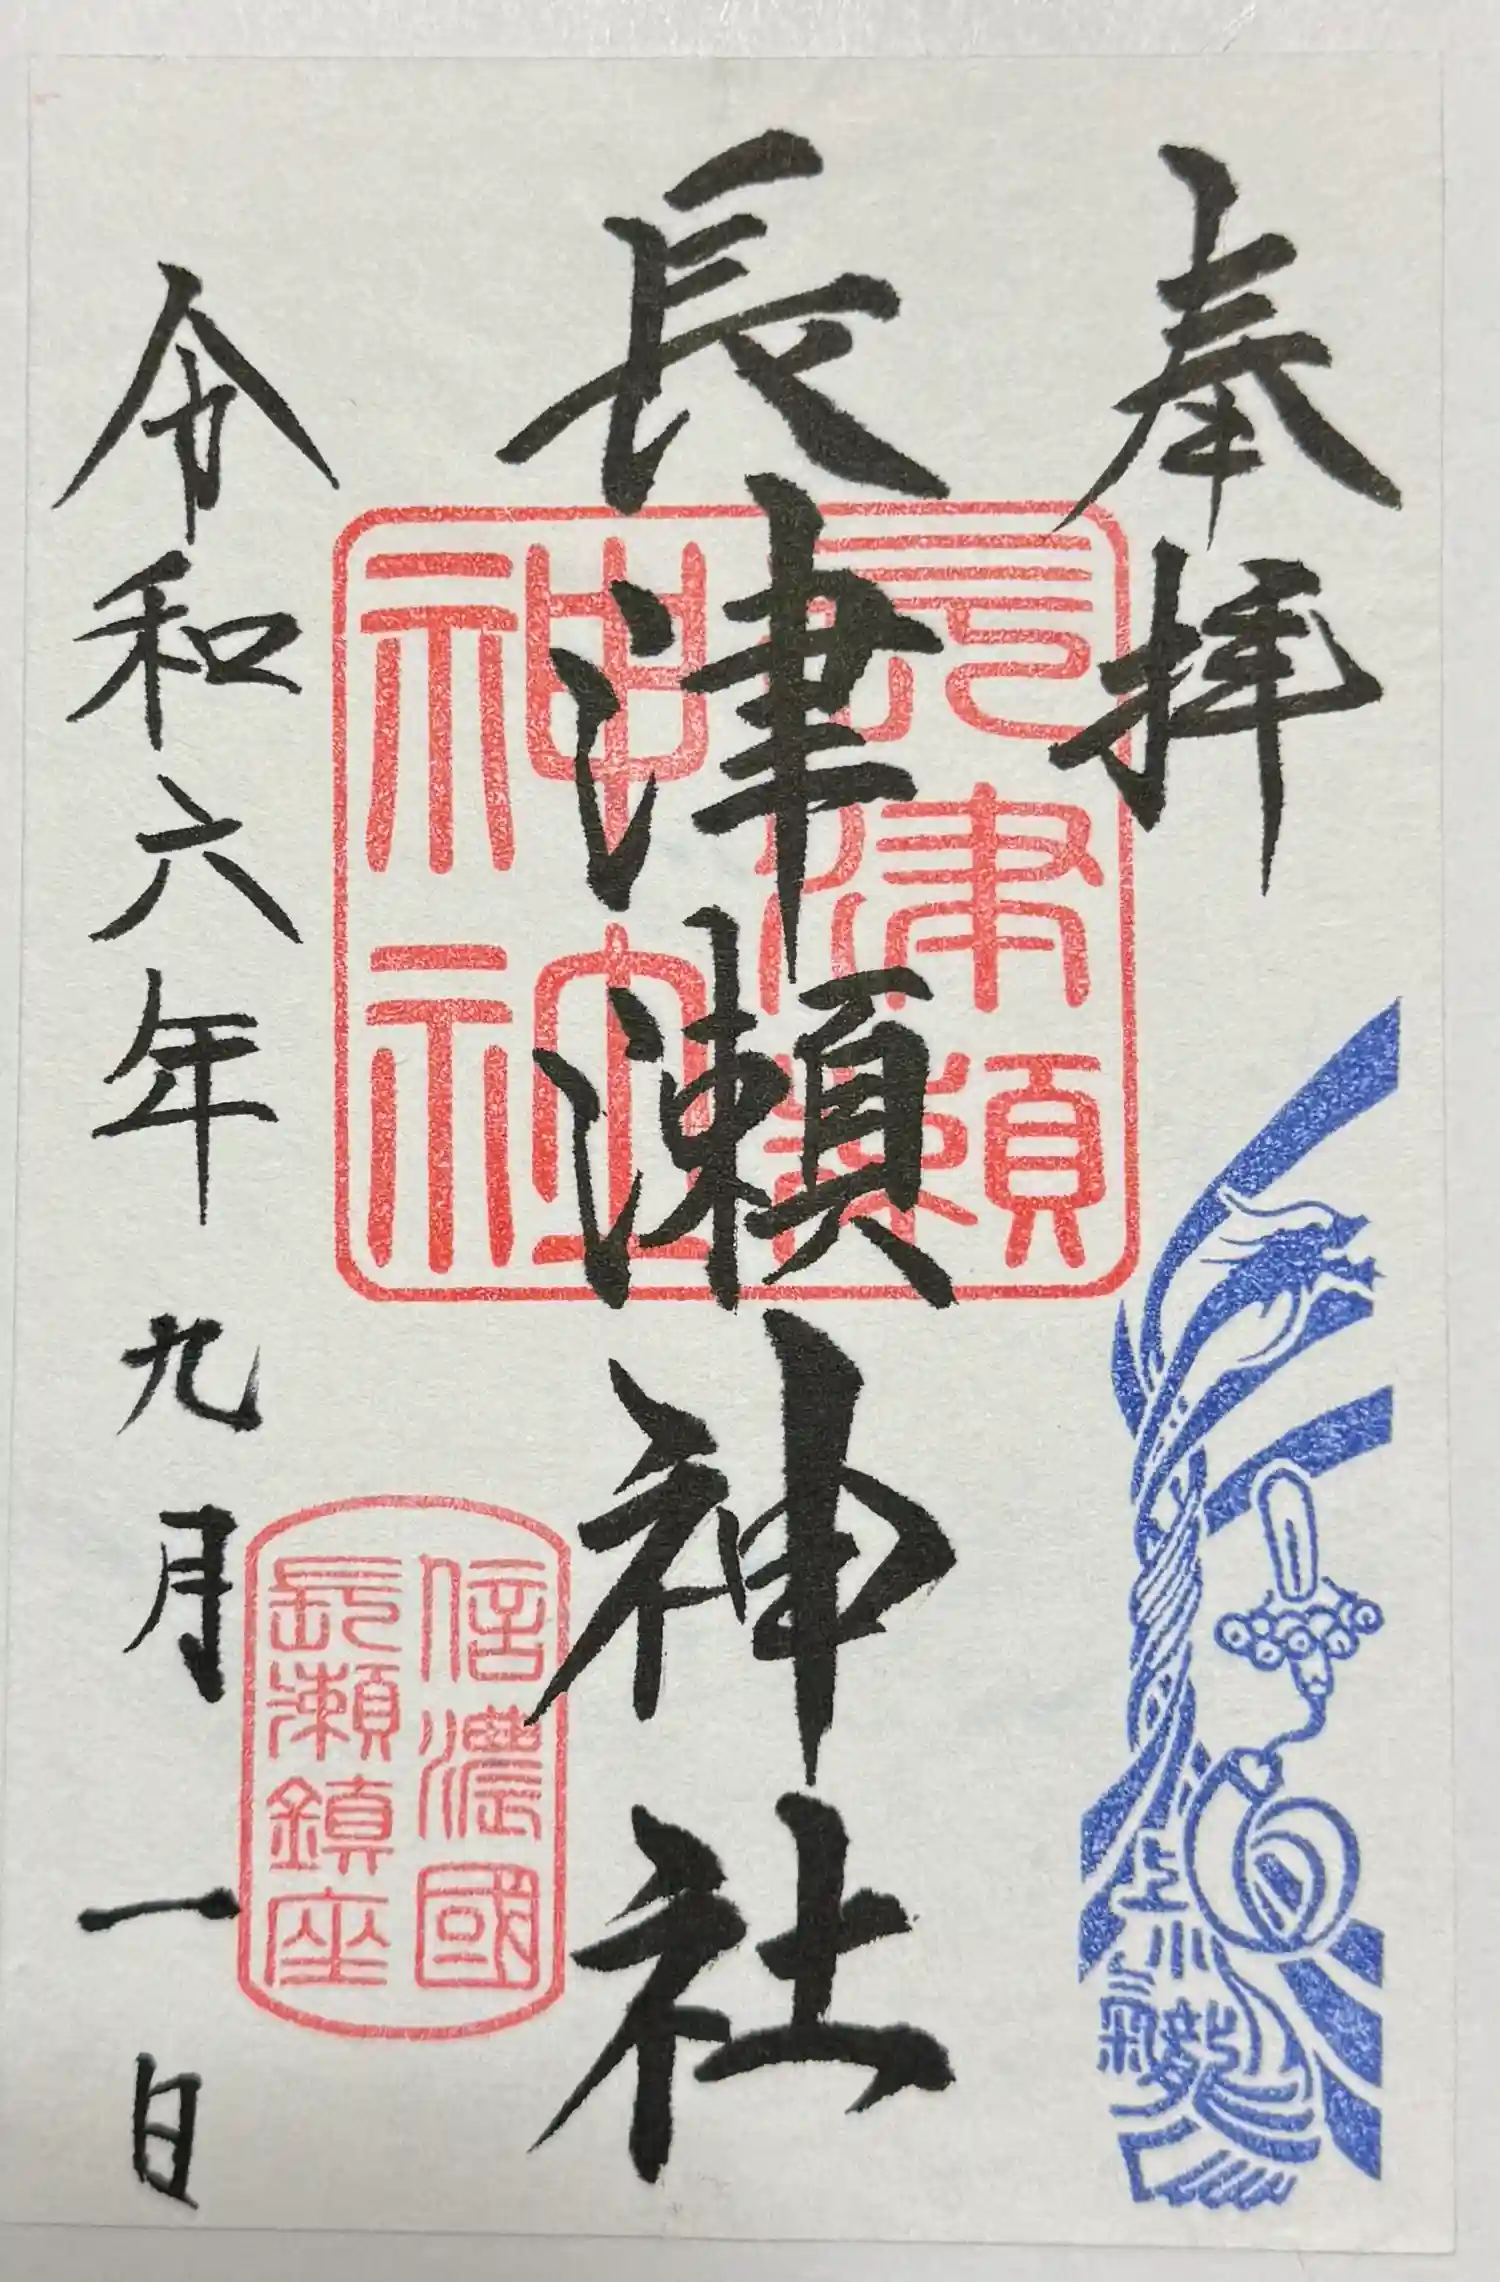 奉拝
長津瀬
神社
長津瀬神社
信濃國
長瀬鎮座
令和六年九月一日